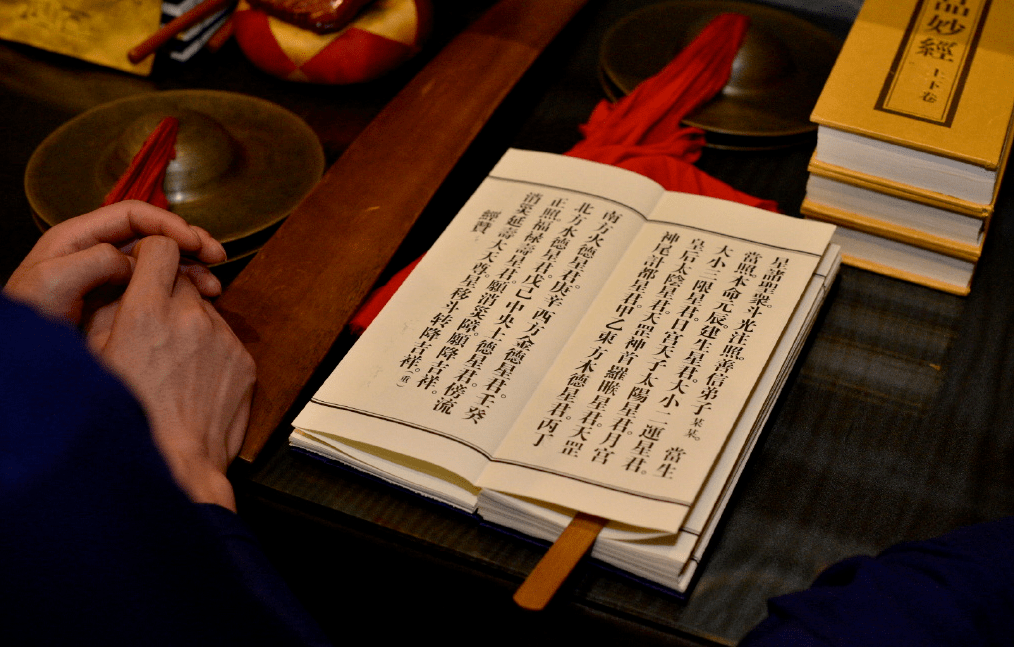 星諸聖衆。斗光注照。善信弟子某某。當生
當照。本命元辰。建生星君。大小二運星君。
大小三限星君。日宮天子太陽星君。月宮
皇后太陰星君。天罡神首羅睺星君。天罡
神尾計都星君。甲乙東方木德星君。丙丁
南方火德星君。庚辛西方金德星君。壬癸
北方水德星君。戊己中央土德星君。傍流
正照。福祿壽星君。願消災障。願降吉祥。
消災延壽。大天尊。星移斗转降吉祥。(重)
經贊
品妙經
上下卷